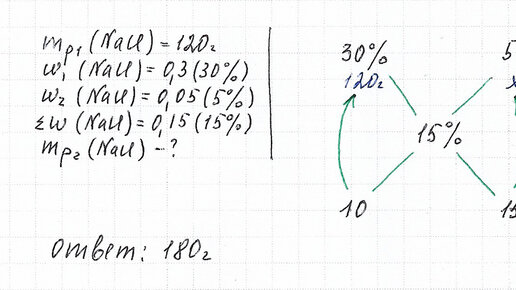 mр₁ (NaCl) = 120г
w₁ (NaCl) = 0,3 (30%)
w₂ (NaCl) = 0,05 (5%)
Σw (NaCl) = 0,15 (15%)
mр₂ (NaCl) - ?
30% 5
120г x
15%
10 15
Ответ: 180г